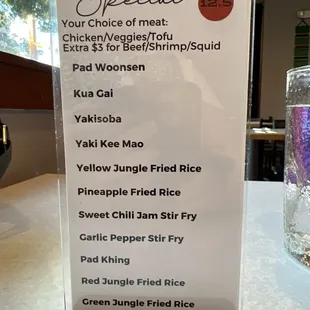 Special
12.5
Your Choice of meat:
Chicken/Veggies/Tofu
Extra $3 for Beef/Shrimp/Squid
Pad Woonsen
Kua Gai
Yakisoba
Yaki Kee Mao
Yellow Jungle Fried Rice
Pineapple Fried Rice
Sweet Chili Jam Stir Fry
Garlic Pepper Stir Fry
Pad Khing
Red Jungle Fried Rice
Green Jungle Fried Rice